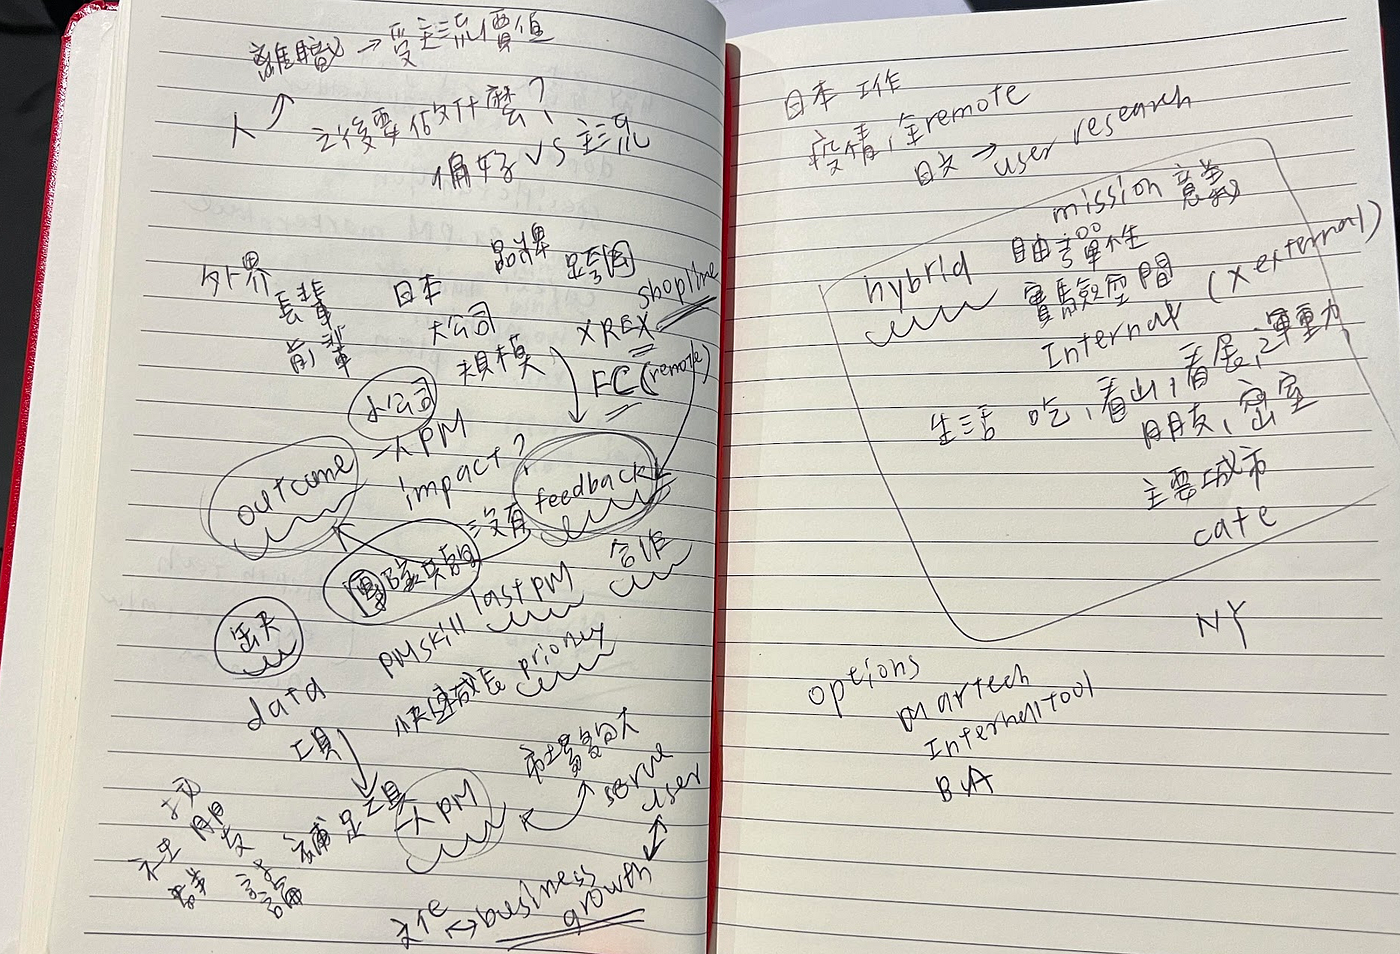 離職 → 受主流價值
人
之後要做什麼?
偏好 vs 主流
外界
長輩
前輩
日本
大公司
規模
品牌 跨國
shopline
XREX
EC (remote)
小公司
一人PM
impact?
outcome
沒有
feedback
團隊共識
合作
last PM
缺失
PM skill
快速成長 priority
data
工具
補足工具
一人PM
市場夠大
serve
user
找
朋友
討論
社
文化 ↔ business
growth
日本 工作
疫情,全remote
日文 → user research
mission 意義
hybrid 自由彈性
實驗空間
Internal (x external)
生活 吃,看山,看展,運重力
朋友,密室
主要城市
cafe
NY
options
martech
Internal tool
BA